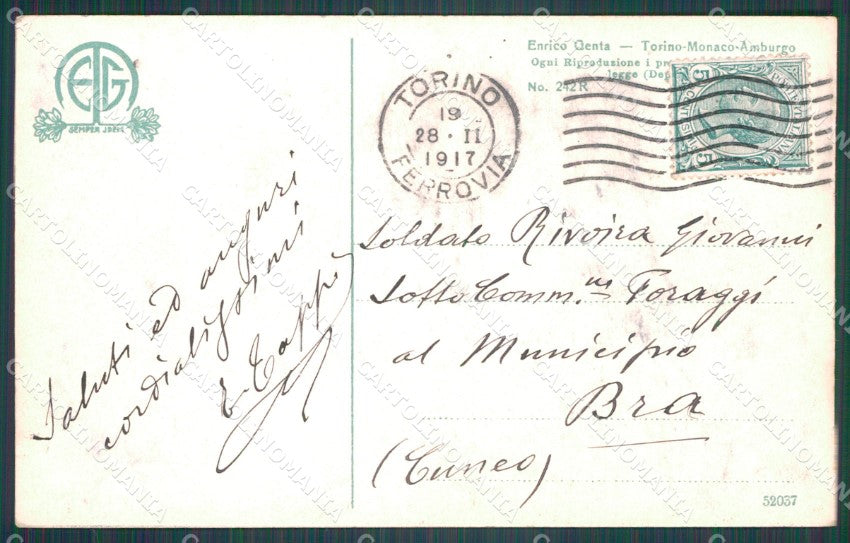 EGA
SEMPER IDEM
Enrico Genta — Torino-Monaco-Amburgo
Ogni Riproduzione i
legge (De
No. 242R
TORINO
19
28 · II
1917
FERROVIA
5 5
Saluti ed auguri
cordialissimi
E. Cappi
Soldato Rivoira Giovanni
Sotto Comm.ne Foraggi
al Municipio
Bra
(Cuneo)
52037
CARTOLINOMANIA